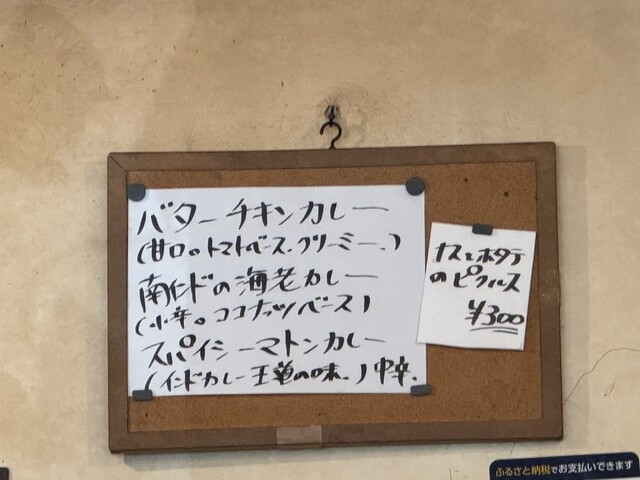 バターチキンカレー
(甘口。トマトベース.クリーミー.)
南インドの海老カレー
(小辛。ココナッツベース)
スパイシーマトンカレー
(インドカレー王道の味.)中辛.
ナスとホタテ
のピクルス
¥300
ふるさと納税でお支払いできます